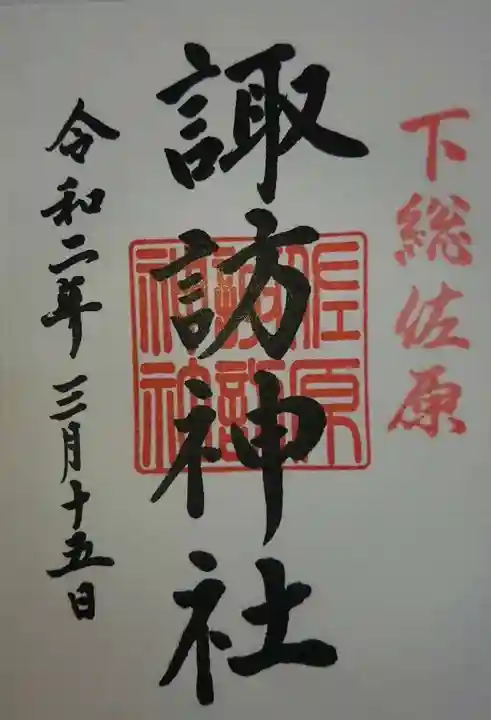 下総佐原
諏訪神社
佐原
諏訪
神社
令和二年三月十五日